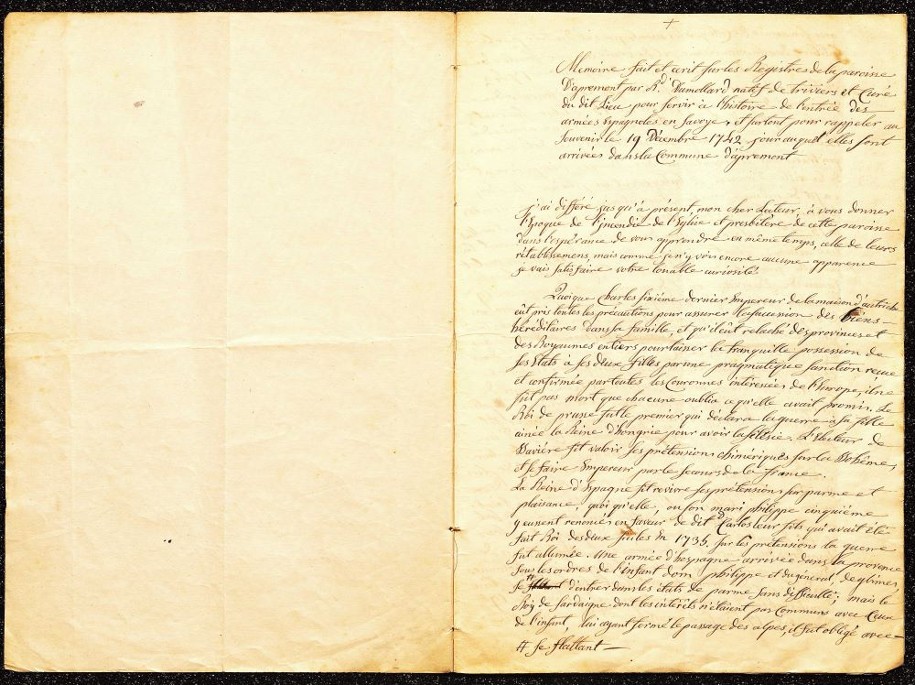 +
Memoire fait et ecrit sur les Registres de la paroisse
D'apremont par Rd Dumollard natif de triviers et Curé
du dit Lieu pour servir à l'histoire de l'entrée des
armées Espagnoles en Savoye, et surtout pour rappeler au
Souvenir le 19 Décembre 1742 jour auquel elles sont
arrivées dans la Commune d'apremont
j'ai différé jus qu'à présent, mon cher Lecteur, à vous donner
l'Epoque de l'incendie de l'Eglise et presbitère de cette paroisse
dans l'espérance de vous apprendre en même temps, celle de leurs
rétablissemens, mais comme je n'y vois encore aucune apparence
je vais satisfaire votre louable curiosité
Quoique Charles sixième dernier Empereur de la maison d'autriche
eût pris toutes les précautions pour assurer la succession des biens
héréditaires dans sa famille, et qu'il eût relaché des provinces et
des Royaumes entiers pour laisser la tranquille possession de
ses Etats à ses deux filles par une pragmatique sanction reçue
et confirmée par toutes les Couronnes intéressées de l'Europe, il ne
fut pas mort que chacune oublia ce qu'elle avait promis. Le
Roi de prusse fut le premier qui déclara la guerre a sa fille
ainée la Reine d'hongrie pour avoir la silésie. L'Electeur de
Bavière fit valoir ses prétentions chimériques sur la Bohême,
et se faire Empereur par le secours de la france.
La Reine d'Espagne fit revivre ses prétentions sur parme et
plaisance, quoi qu'elle, ou son mari philippe cinquième
y eussent renoncés en faveur de dit Carlos leur fils qui avait été
fait Roi des deux siciles en 1735. Sur les prétentions la guerre
fut allumée. Une armée d'hespagne arrivée dans la provence
sous les ordres de l'infant dom philippe et du general deglimes
se d'entrer dans les états de parme sans difficulté; mais le
Roy de Sardaigne dont les intérêts n'étaient pas Communs avec Ceux
de l'infant, lui ayant fermé le passage des alpes, il fut obligé avec
# se flattant